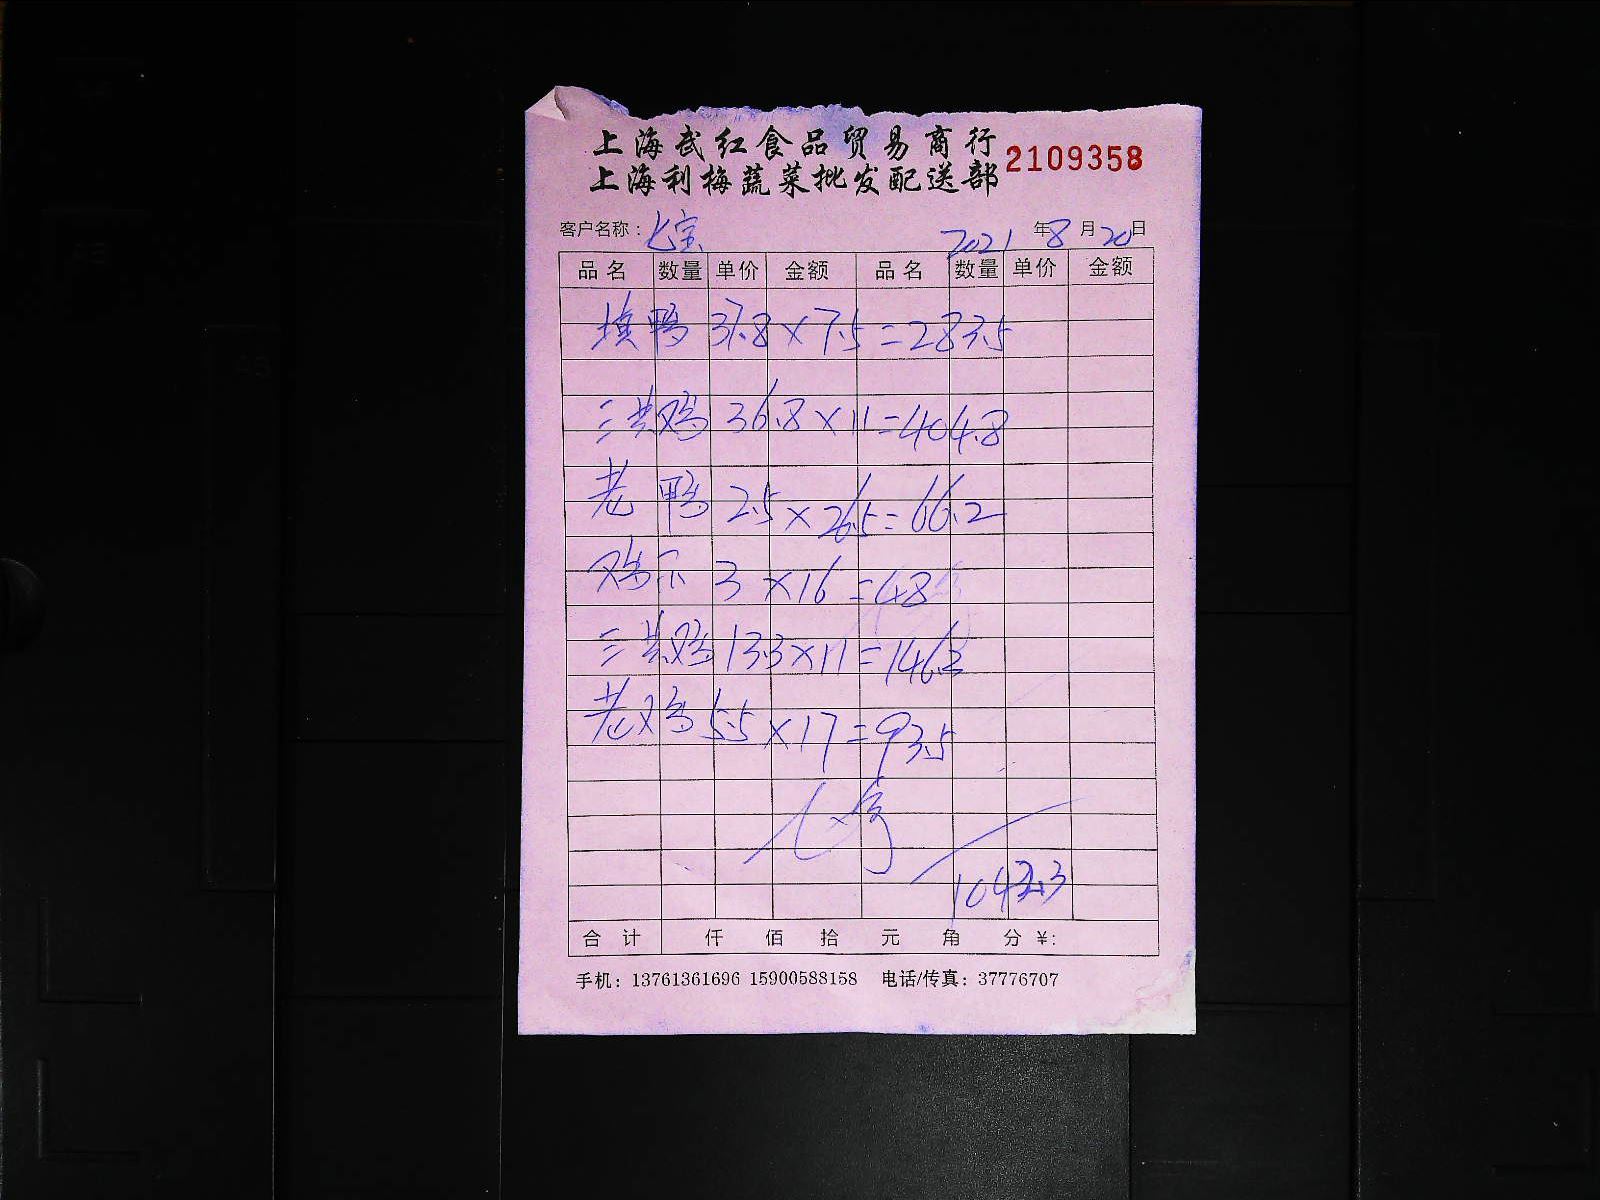 上海武红食品贸易商行
上海利梅蔬菜批发配送部 2109358
客户名称：七宝 2021年8月20日
品名 数量 单价 金额 品名 数量 单价 金额
填鸭 37.8×7.5=283.5
三黄鸡 36.8×11=404.8
老鸭 2.5×26.5=66.2
鸡爪 3×16=48
三黄鸡 13.3×11=146.3
老鸡 5.5×17=93.5
1042.3
合计 仟 佰 拾 元 角 分 ¥:
手机：13761361696 15900588158 电话/传真：37776707